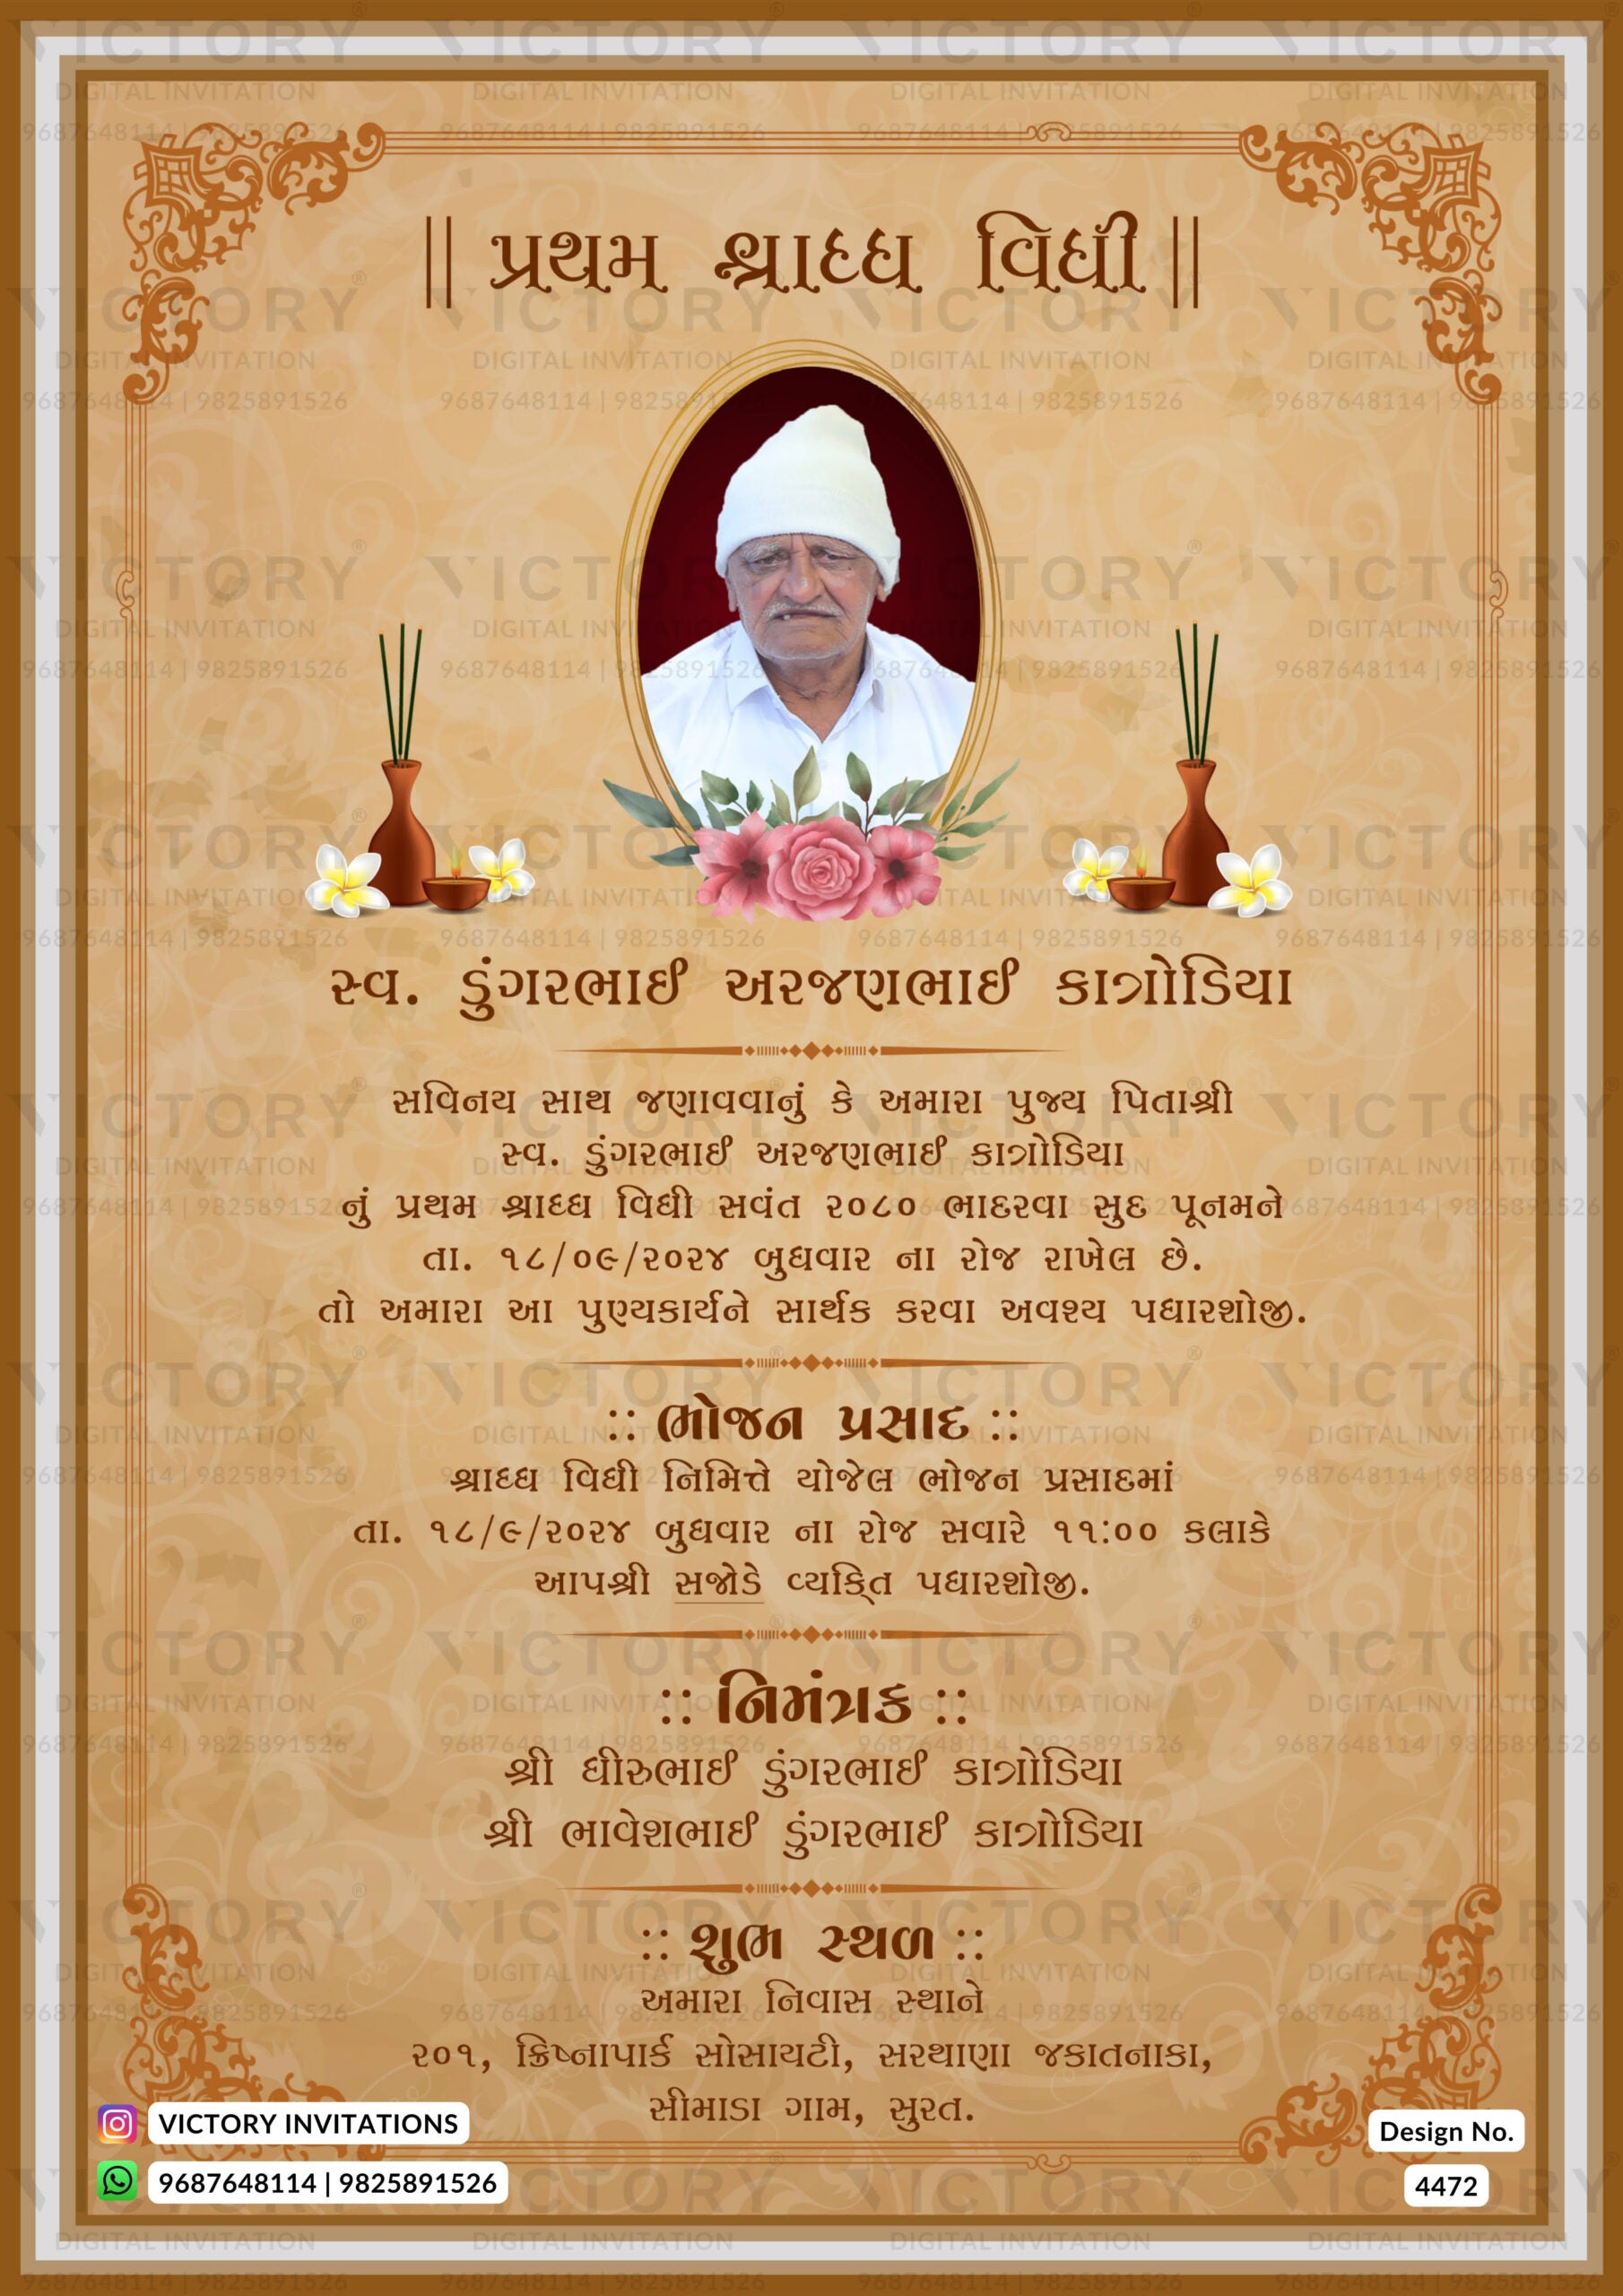 || પ્રથમ શ્રાદ્ધ વિધી ||
સ્વ. ડુંગરભાઈ અરજણભાઈ કાત્રોડિયા
સવિનય સાથ જણાવવાનું કે અમારા પુજ્ય પિતાશ્રી
સ્વ. ડુંગરભાઈ અરજણભાઈ કાત્રોડિયા
નું પ્રથમ શ્રાદ્ધ વિધી સવંત ૨૦૮૦ ભાદરવા સુદ પૂનમને
તા. ૧૮/૦૯/૨૦૨૪ બુધવાર ના રોજ રાખેલ છે.
તો અમારા આ પુણ્યકાર્યને સાર્થક કરવા અવશ્ય પધારશોજી.
:: ભોજન પ્રસાદ ::
શ્રાદ્ધ વિધી નિમિત્તે યોજેલ ભોજન પ્રસાદમાં
તા. ૧૮/૯/૨૦૨૪ બુધવાર ના રોજ સવારે ૧૧:૦૦ કલાકે
આપશ્રી સજોડે વ્યક્તિ પધારશોજી.
:: નિમંત્રક ::
શ્રી ધીરુભાઈ ડુંગરભાઈ કાત્રોડિયા
શ્રી ભાવેશભાઈ ડુંગરભાઈ કાત્રોડિયા
:: શુભ સ્થળ ::
અમારા નિવાસ સ્થાને
૨૦૧, ક્રિષ્નાપાર્ક સોસાયટી, સરથાણા જકાતનાકા,
સીમાડા ગામ, સુરત.
VICTORY INVITATIONS
9687648114 | 9825891526
Design No.
4472
VICTORY
DIGITAL INVITATION
9687648114 | 9825891526